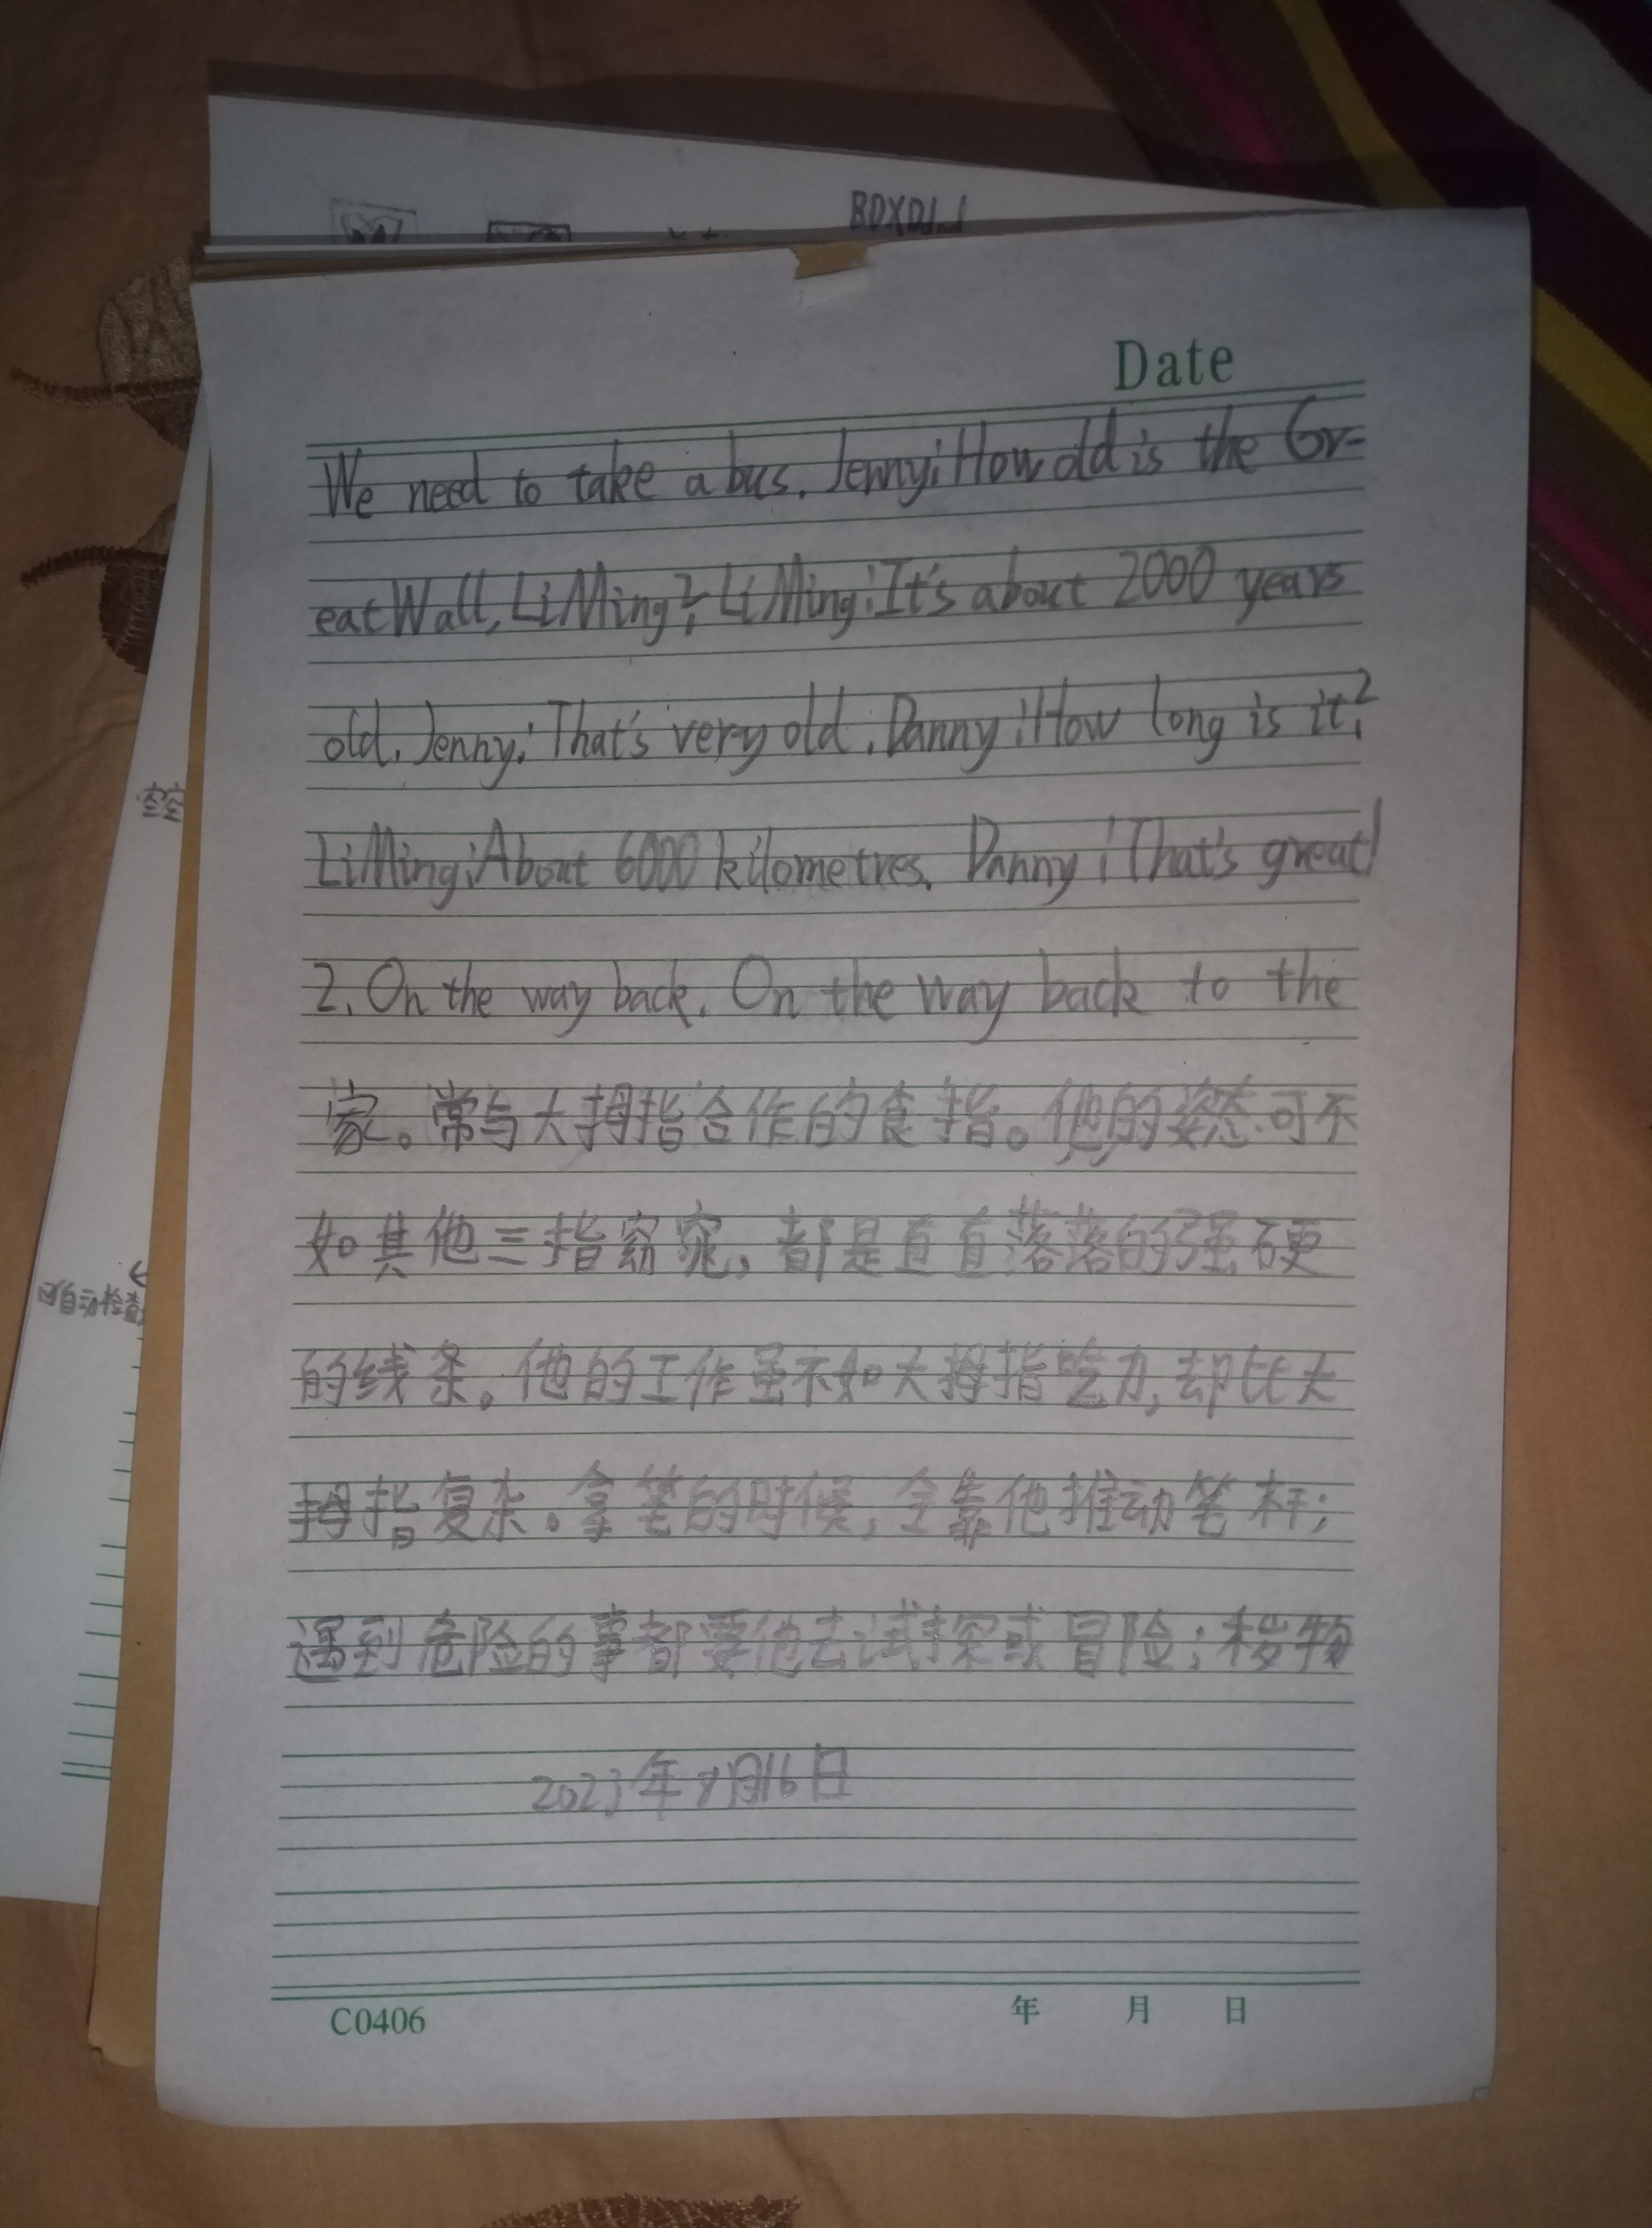 BDXD
Date
We need to take a bus. Jenny: How old is the Gr-
eat Wall, Li Ming? Li Ming: It's about 2000 years
old. Jenny: That's very old. Danny: How long is it?
Li Ming: About 6000 kilometres. Danny: That's great!
2. On the way back. On the way back to the
家。常与大拇指合作的食指。他的姿态可不
如其他三指窈窕，都是直直落落的强硬
的线条。他的工作虽不如大拇指吃力，却比大
拇指复杂。拿笔的时候，全靠他推动笔杆；
遇到危险的事都要他去试探或冒险；秽物
2023年8月16日
C0406 年 月 日
自动检查